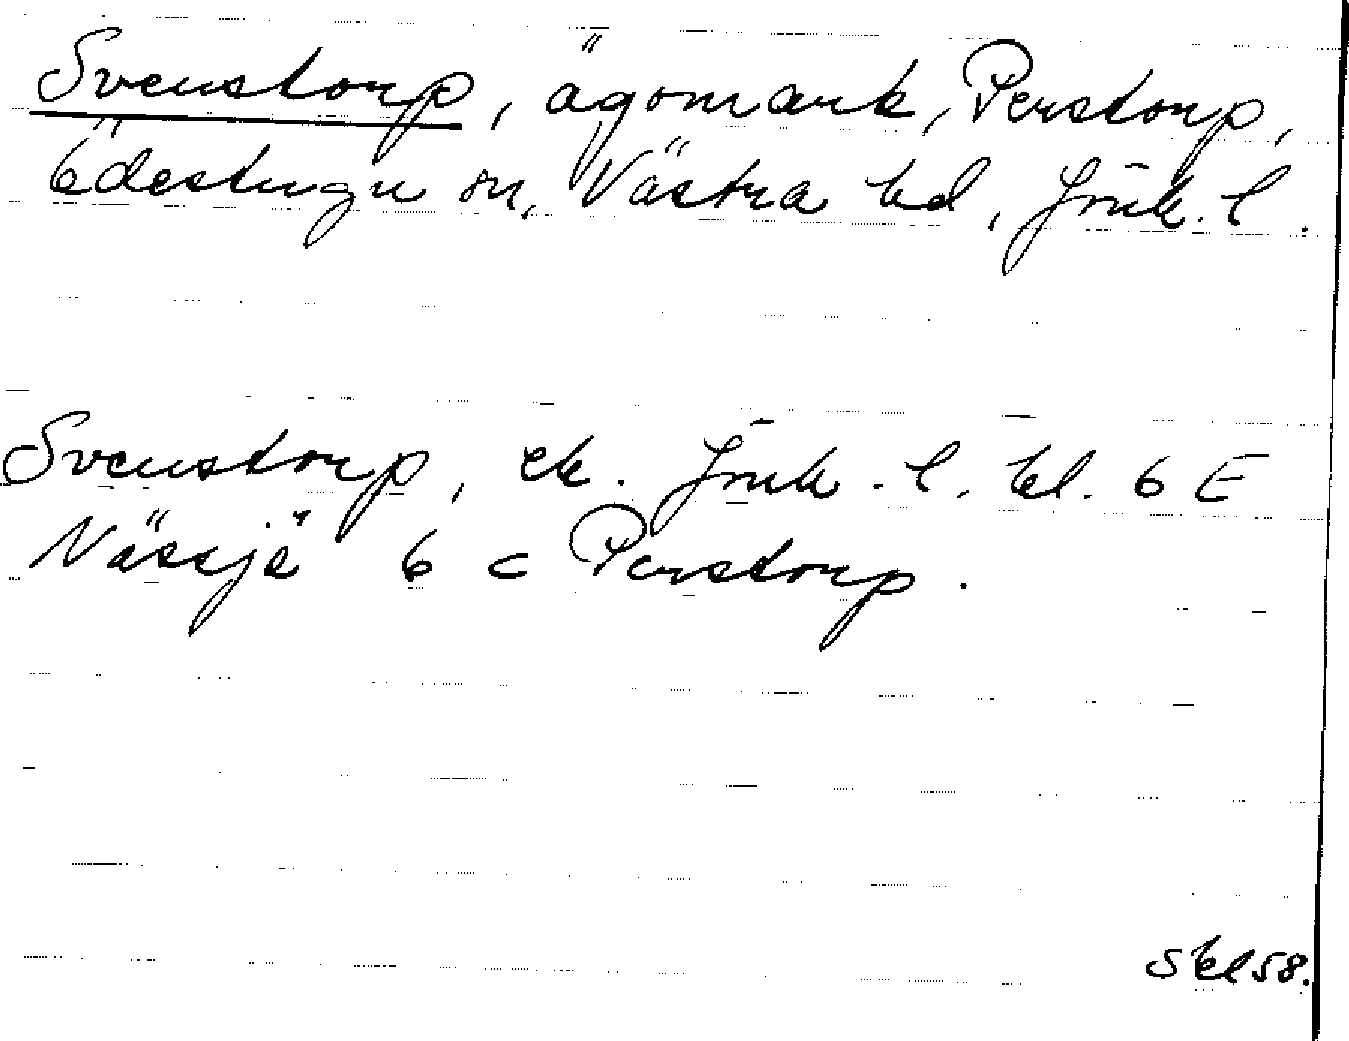 Svenstorp, ägomark, Perstorp,
Ödestugu sn, Västra hd, Jönk. l.
Svenstorp, ek. Jönk. l. bl. 6 E
Nässjö 6 c Perstorp.
Skl 58.